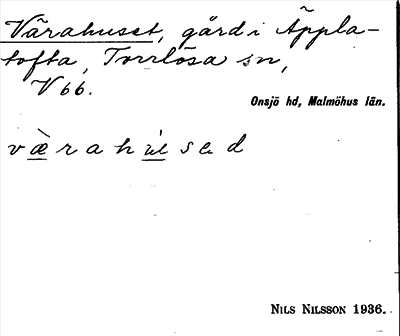 Värahuset, gård i Äppla-
tofta, Torrlösa sn,
V 66.
Onsjö hd, Malmöhus län.
v æ̀ r a h ú s e d
NILS NILSSON 1936.